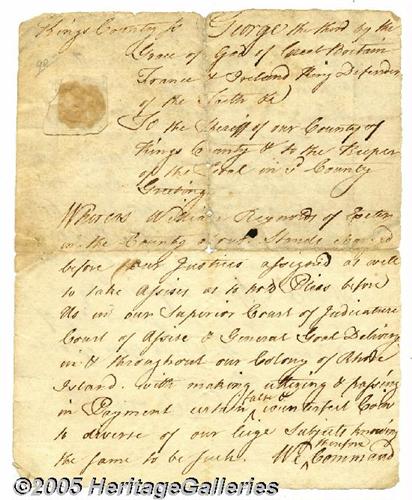 Kings County Sc George the third by the
Grace of God of Great Britain
France & Ireland King Defender
of the Faith &c
To the Sheriff of our County of
Kings County & to the Keeper
of the Goal in sd County
Greeting
Whereas William Reynolds of Exeter
in the County stands
before our Justices assigned as well
to take Assises as to hold Pleas before
us in our Superior Court of Judicature
Court of Assise & General Goal Delivery
in & throughout our Colony of Rhode
Island with making uttering & passing
in Payment certain false & counterfeit Coin
to diverse of our leige Subjects knowing
the same to be such. We therefore Command
©2005 HeritageGalleries